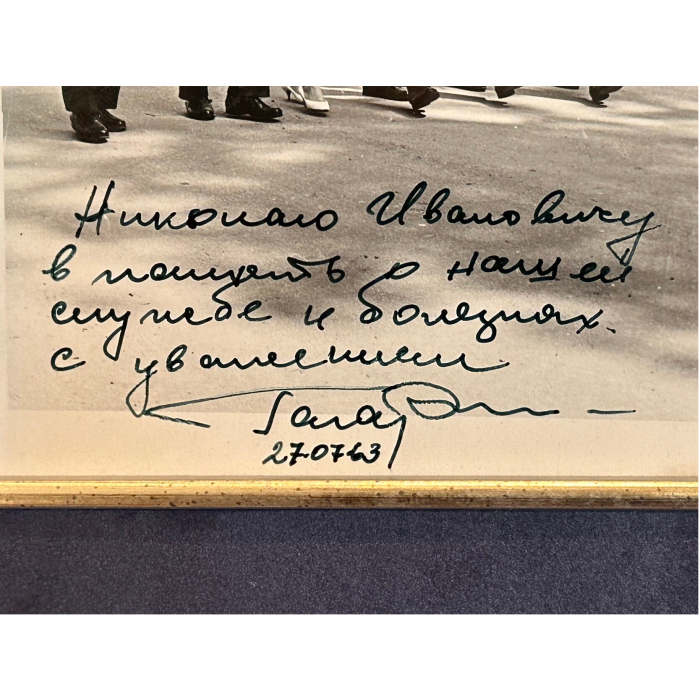 Николаю Ивановичу
в память о нашей
службе и болезнях.
с уважением
Гагарин
27.07.63